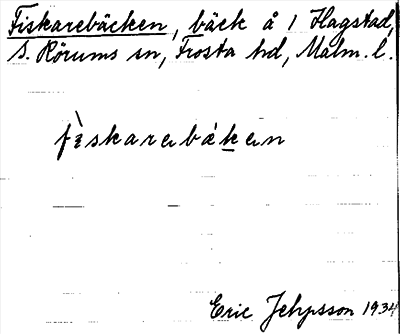 Fiskarebäcken, bäck å 1 Hagstad,
S. Rörums sn, Frosta hd, Malm. l.
fìskarebáken
Eric Jehpsson 1934